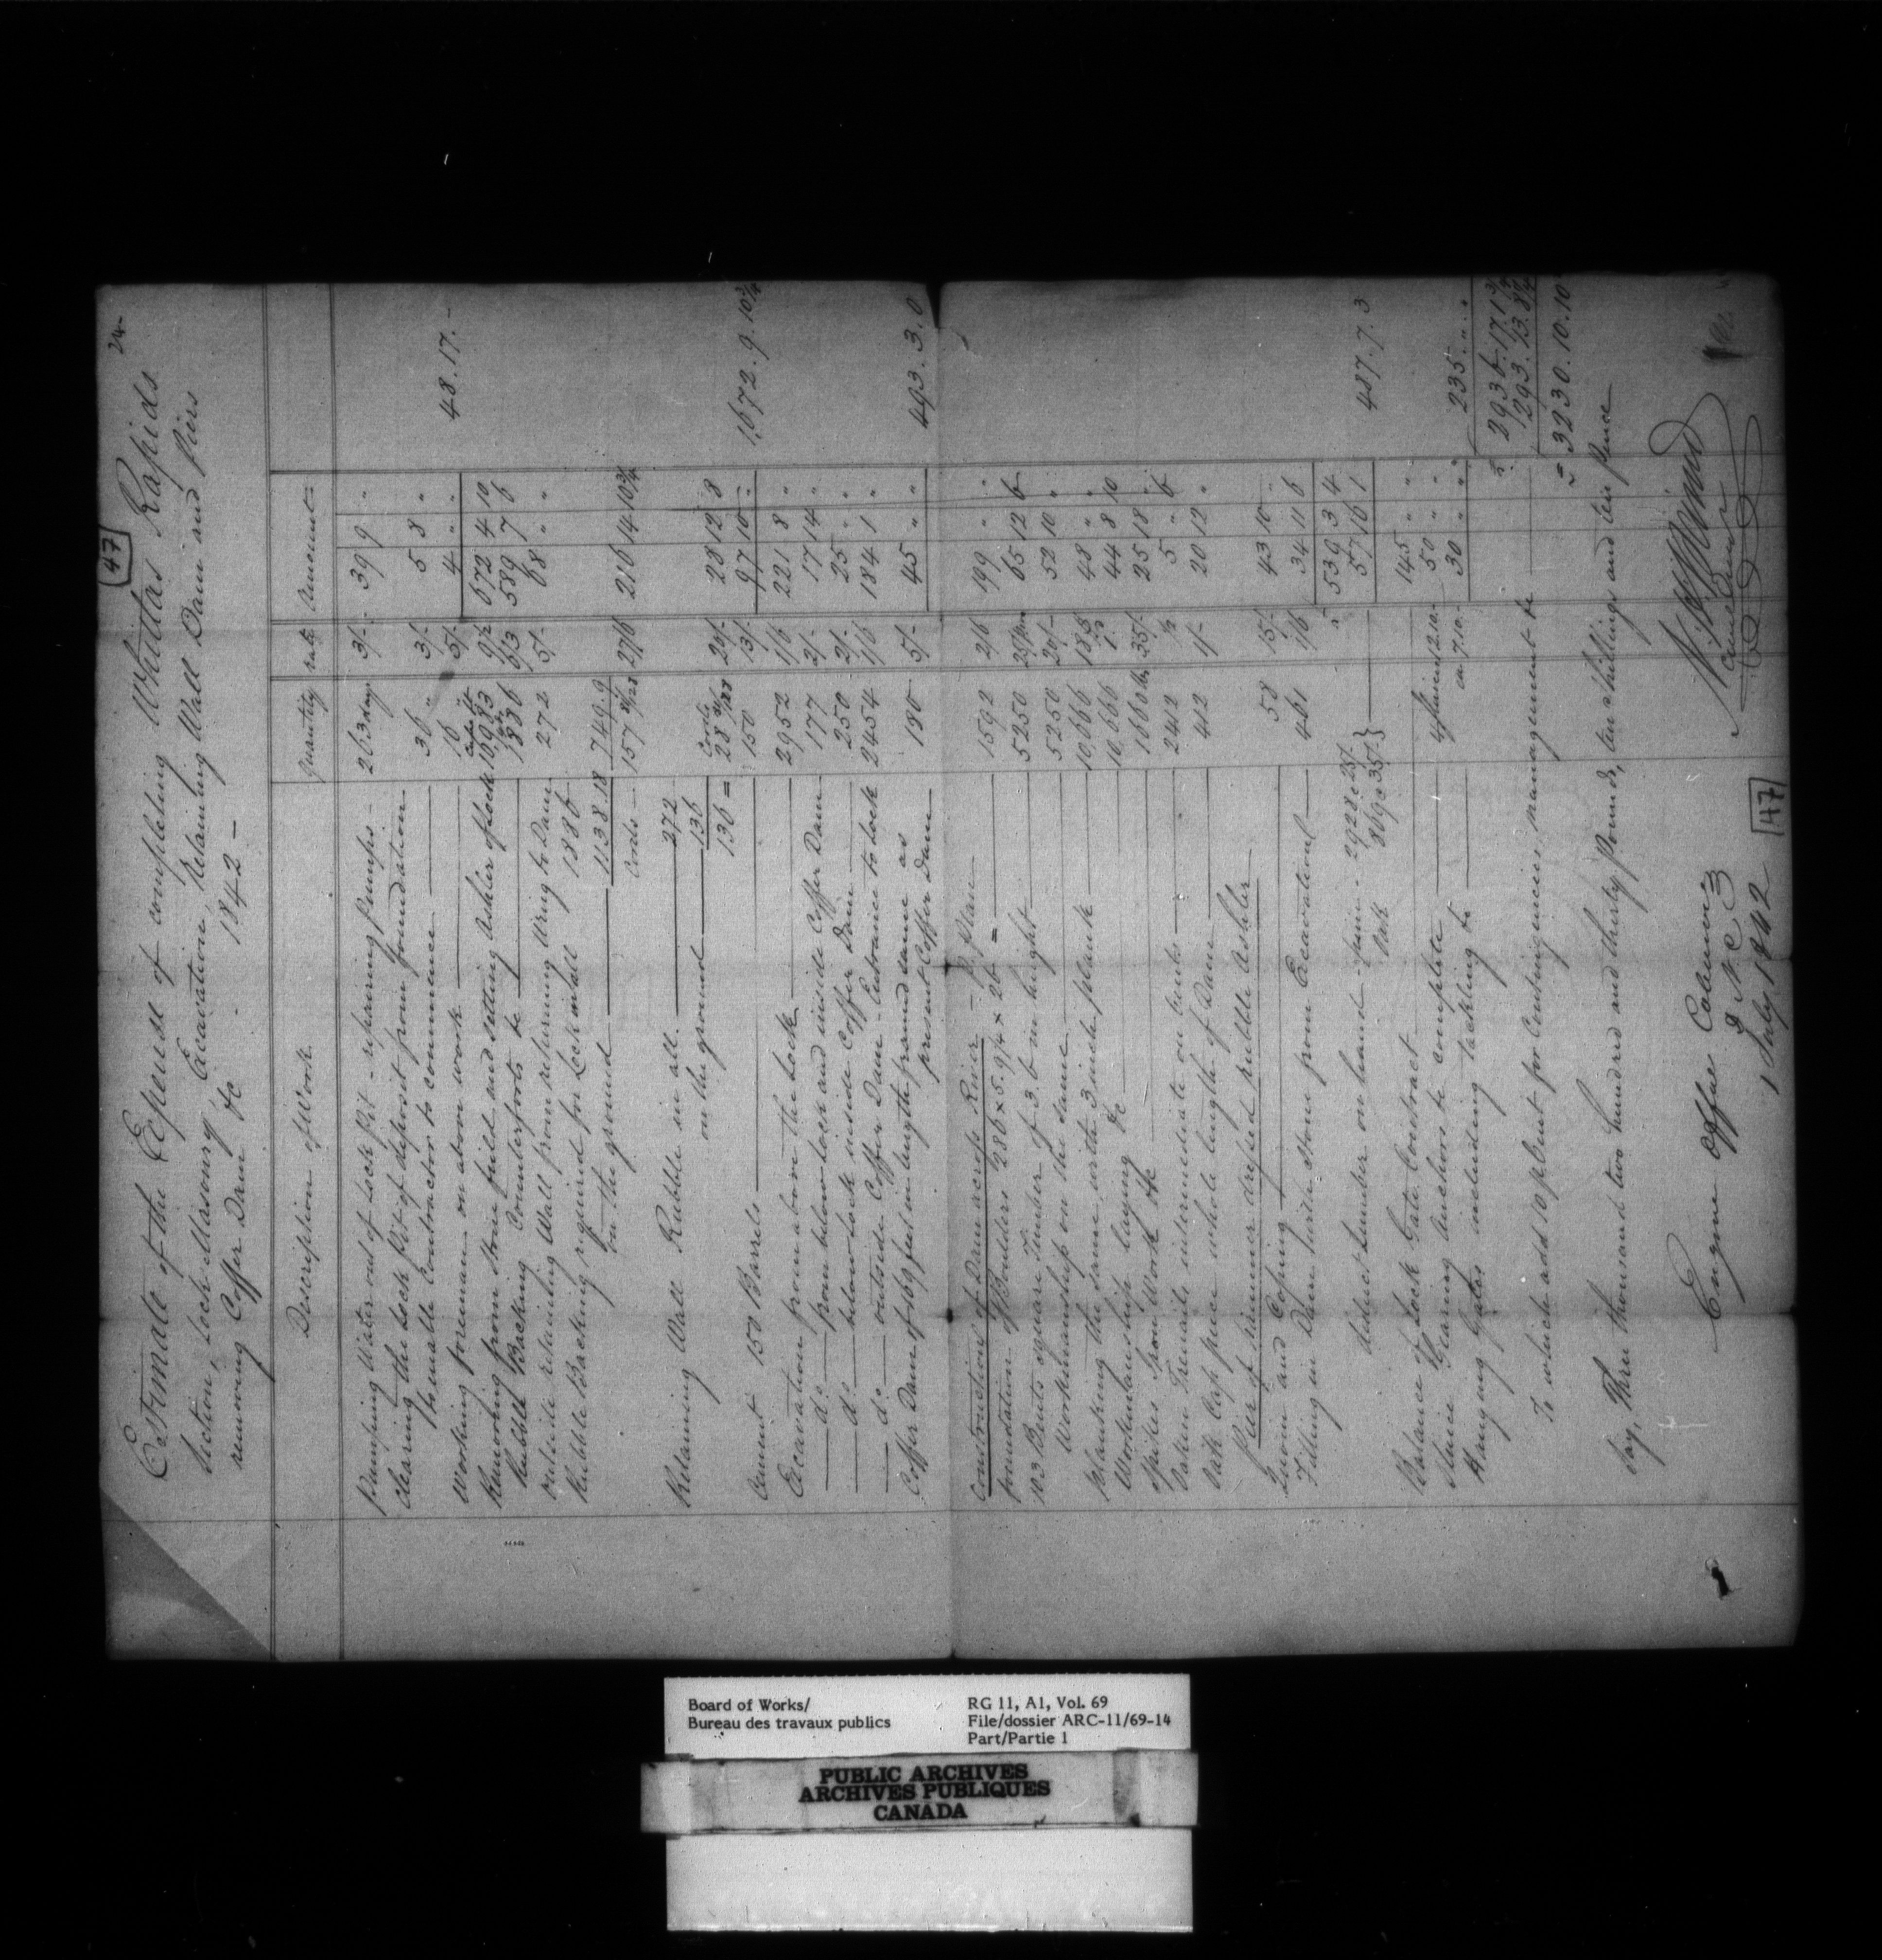 47
24-
Estimate of the Expense of completing Whitlas Rapids
Section, Lock Masonry, Excavation, Retaining Wall Dam and Piers
removing Coffer Dam &c - 1842 -
Description of Work Quantity rate Amount
Pumping Water out of Lock Pit - repairing Pumps - 263 days 3/- 39 9 "
Clearing the Lock Pit of deposit from foundation
to enable Contractor to commence 36 " 3/- 5 8 "
Working foreman on above work 16 5/- 4 " " 48.17.-
Removing from Stone field and setting Ashler of Lock 672 4 10
Rubble Backing Counterforts &c 1886 6/3 589 7 6
outside retaining Wall from returning Wing to Dam 272 5/- 68 " "
Rubble Backing required for Lock Wall 1886
on the ground 1138.18 749.9
Cords 157 27/6 216 14 10¾
Retaining Wall Rubble in all 272
on the ground 136
136 = Cords 28 20/- 28 12 8
Cement 150 Barrels 150 13/- 97 10 " 1,672.9.10¾
Excavation from above the Lock 2952 1/6 221 8 "
do from below Lock and inside Coffer Dam 177 2/- 17 14 "
do below Lock inside Coffer Dam 250 2/- 25 " "
do outside Coffer Dam - Entrance to Lock 2454 1/6 184 1 "
Coffer Dam of 169 feet in length framed same as
present Coffer Dam 180 5/- 45 " " 493.3.0
Construction of Dam across River - p. Plan
foundation of Boulders 286 x 5.9/4 x 26 = 1592 2/6 199 " "
103 Bents square Timber of 3.6 in height 5250 65 12 6
Workmanship on the same 5250 20/- 52 10 "
planking the same with 3 inch plank 10,666 48 " "
Workmanship laying &c 10,666 44 8 10
Spikes Iron Work &c 1660 lbs 35/- 25 18 "
Oaken Trenails intermediate on bents 2412 ½ 5 " 6
Oak Cap piece whole length of Dam 412 1/- 20 12 "
Pier of hammer dressed rubble Ashler
Quoin and Coping 58 15/- 43 10 "
Filling in Dam with stone from Excavation 461 1/6 34 11 6
539 3 4
deduct timber on hand - pine - 2928 @ 25/- }
Oak 869 @ 35/- } 57 16 1 487.7.3
Balance of Lock Gate Contract 145 " "
Sluice Gearing Anchors &c complete 4 Sluices 12.10- 50 " "
Hanging Gates including tackling &c ea 7.10- 30 " " 235. ".".
£ 2936.17.1¾
To which add 10 p Cent for Contingencies, management &c 293.13.8¼
£ 3230.10.10
Say, Three thousand two hundred and thirty Pounds, ten shillings and ten Pence
Engine Office Colborne
1 July 1842
47
Board of Works/
Bureau des travaux publics
RG 11, A1, Vol. 69
File/dossier ARC-11/69-14
Part/Partie 1
PUBLIC ARCHIVES
ARCHIVES PUBLIQUES
CANADA